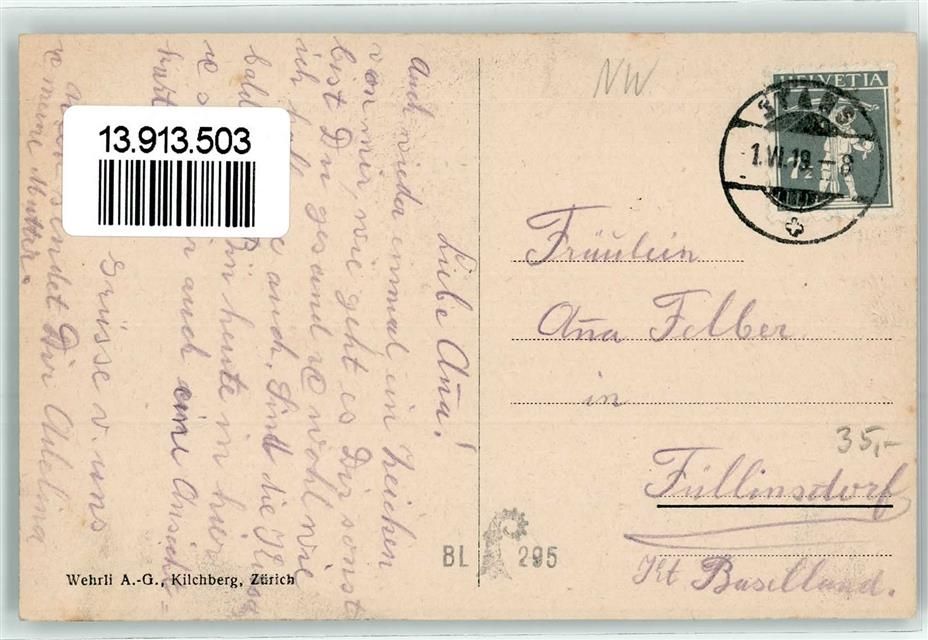 13.913.503
NW
HELVETIA
STANS
1.VI.19.–8
7½
Liebe Aña!
Auch wieder einmal ein Zeichen
von mir, wie geht es Dir sonst
bist Du gesund & wohl wie
ich auch. Sind die
bald bin heute in hier
auch eine Ansicht=
kart
Grüsse v. uns
sendet Dir Adelina
& meine Mutter.
Fräulein
Aña Felber.
in
Füllinsdorf
Kt Baselland.
35,-
BL 295
Wehrli A.-G., Kilchberg, Zürich